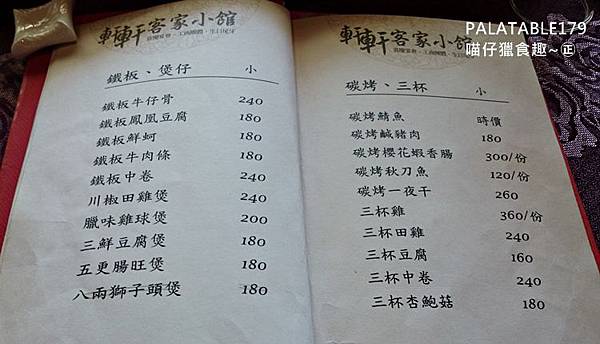 軒軒客家小館
鐵板、煲仔 小
鐵板牛仔骨 240
鐵板鳳凰豆腐 180
鐵板鮮蚵 180
鐵板牛肉條 180
鐵板中卷 240
川椒田雞煲 240
臘味雞球煲 200
三鮮豆腐煲 180
五更腸旺煲 180
八兩獅子頭煲 180
PALATABLE179
喵仔獵食趣~㊣
軒軒客家小館
碳烤、三杯 小
碳烤鯖魚 時價
碳烤鹹豬肉 180
碳烤櫻花蝦香腸 300/份
碳烤秋刀魚 120/份
碳烤一夜干 260
三杯雞 360/份
三杯田雞 240
三杯豆腐 160
三杯中卷 240
三杯杏鮑菇 180